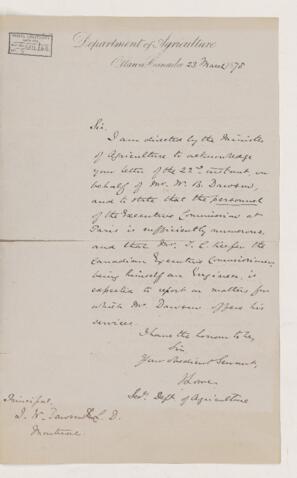 Department of Agriculture
Ottawa Canada 23 March 1878
Sir,
I am directed by the Minister
of Agriculture to acknowledge
your letter of the 22nd instant, on
behalf of Mr. W. B. Dawson,
and to state that the personnel
of the Executive Commission at
Paris is sufficiently numerous,
and that Mr. T. C. Keefer the
Canadian Executive Commissioner,
being himself an Engineer, is
expected to report on matters for
which Mr. Dawson offers his
services.
I have the honour to be,
Sir
Your obedient Servant,
J Lowe
Secy. Dept. of Agriculture
Principal,
J. W. Dawson LL. D.
Montreal